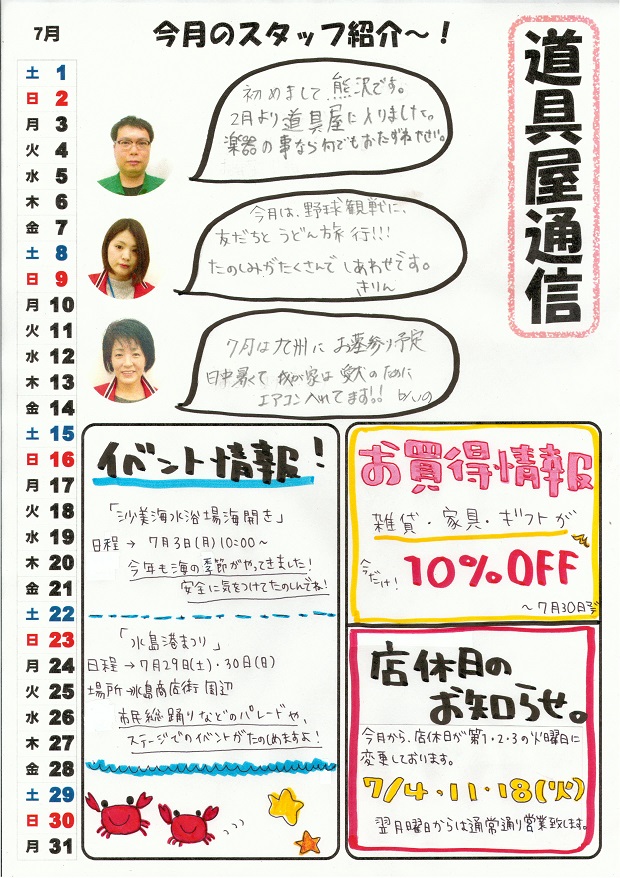 7月
今月のスタッフ紹介〜！
道具屋通信
土 1
日 2
月 3
火 4
水 5
木 6
金 7
土 8
日 9
月 10
火 11
水 12
木 13
金 14
土 15
日 16
月 17
火 18
水 19
木 20
金 21
土 22
日 23
月 24
火 25
水 26
木 27
金 28
土 29
日 30
月 31
初めまして 熊沢です。
2月より道具屋に入りました。
楽器の事なら何でもおたずね
今月は、野球観戦に、
友だちと うどん旅行!!!
たのしみがたくさんで しあわせです。
きりん
7月は九州に お墓参り予定
日中暑くて 我が家は 愛犬のために
エアコン入れてます!!
イベント情報！
「沙美海水浴場海開き」
日程→ 7月3日(月)10:00〜
今年も海の季節がやってきました！
安全に気をつけてたのしんでね！
「水島港まつり」
日程→7月29日(土)・30日(日)
場所→水島商店街 周辺
市民総踊りなどのパレードや、
ステージでのイベントがたのしめますよ！
お買得情報
雑貨・家具・ギフトが
今だけ！
10%OFF
〜7月30日まで
店休日の
お知らせ。
今月から、店休日が第1・2・3の火曜日に
変更しております。
7/4・11・18(火)
翌月曜日からは通常通り営業致します。